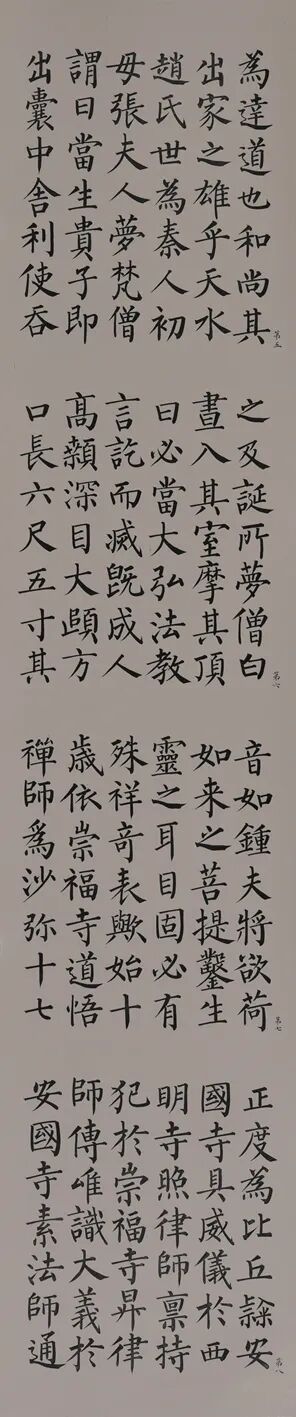 為達道也和尚其
第五
出家之雄乎天水
趙氏世為秦人初
母張夫人夢梵僧
謂曰當生貴子即
出囊中舍利使吞
之及誕所夢僧白
第六
晝入其室摩其頂
曰必當大弘法教
言訖而滅既成人
高顙深目大頤方
口長六尺五寸其
音如鍾夫將欲荷
第七
如来之菩提鑿生
靈之耳目固必有
殊祥奇表歟始十
歲依崇福寺道悟
禪師爲沙弥十七
正度為比丘隸安
第八
國寺具威儀於西
明寺照律師禀持
犯於崇福寺昇律
師傳唯識大義於
安國寺素法師通